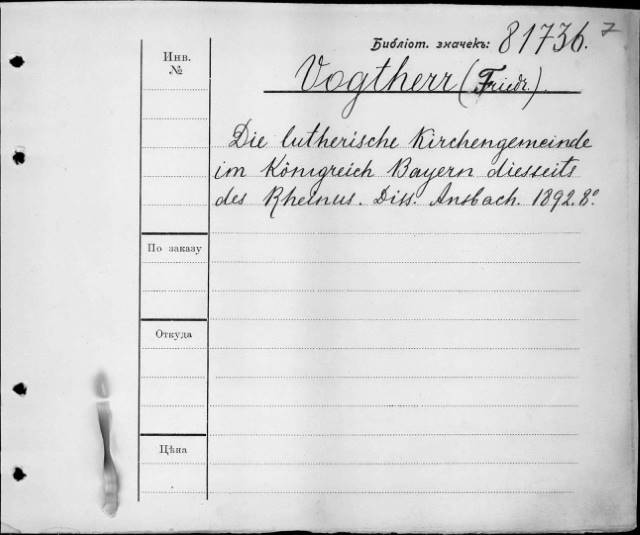 Библіот. значекъ: 81736. 7
Инв. №
Vogtherr (Friedr.)
Die lutherische Kirchengemeinde
im Königreich Bayern diesseits
des Rheinus. Diss. Ansbach. 1892. 8°.
По заказу
Откуда
Цѣна